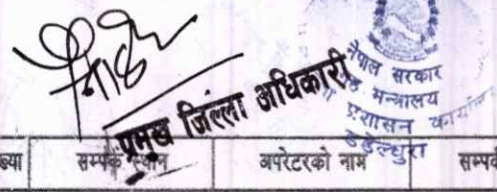 प्रमुख जिल्ला अधिकारी
नेपाल सरकार
मन्त्रालय
प्रशासन
डडेल्धुरा
सम्पर्क
अपरेटरको नाम
सम्पर्क